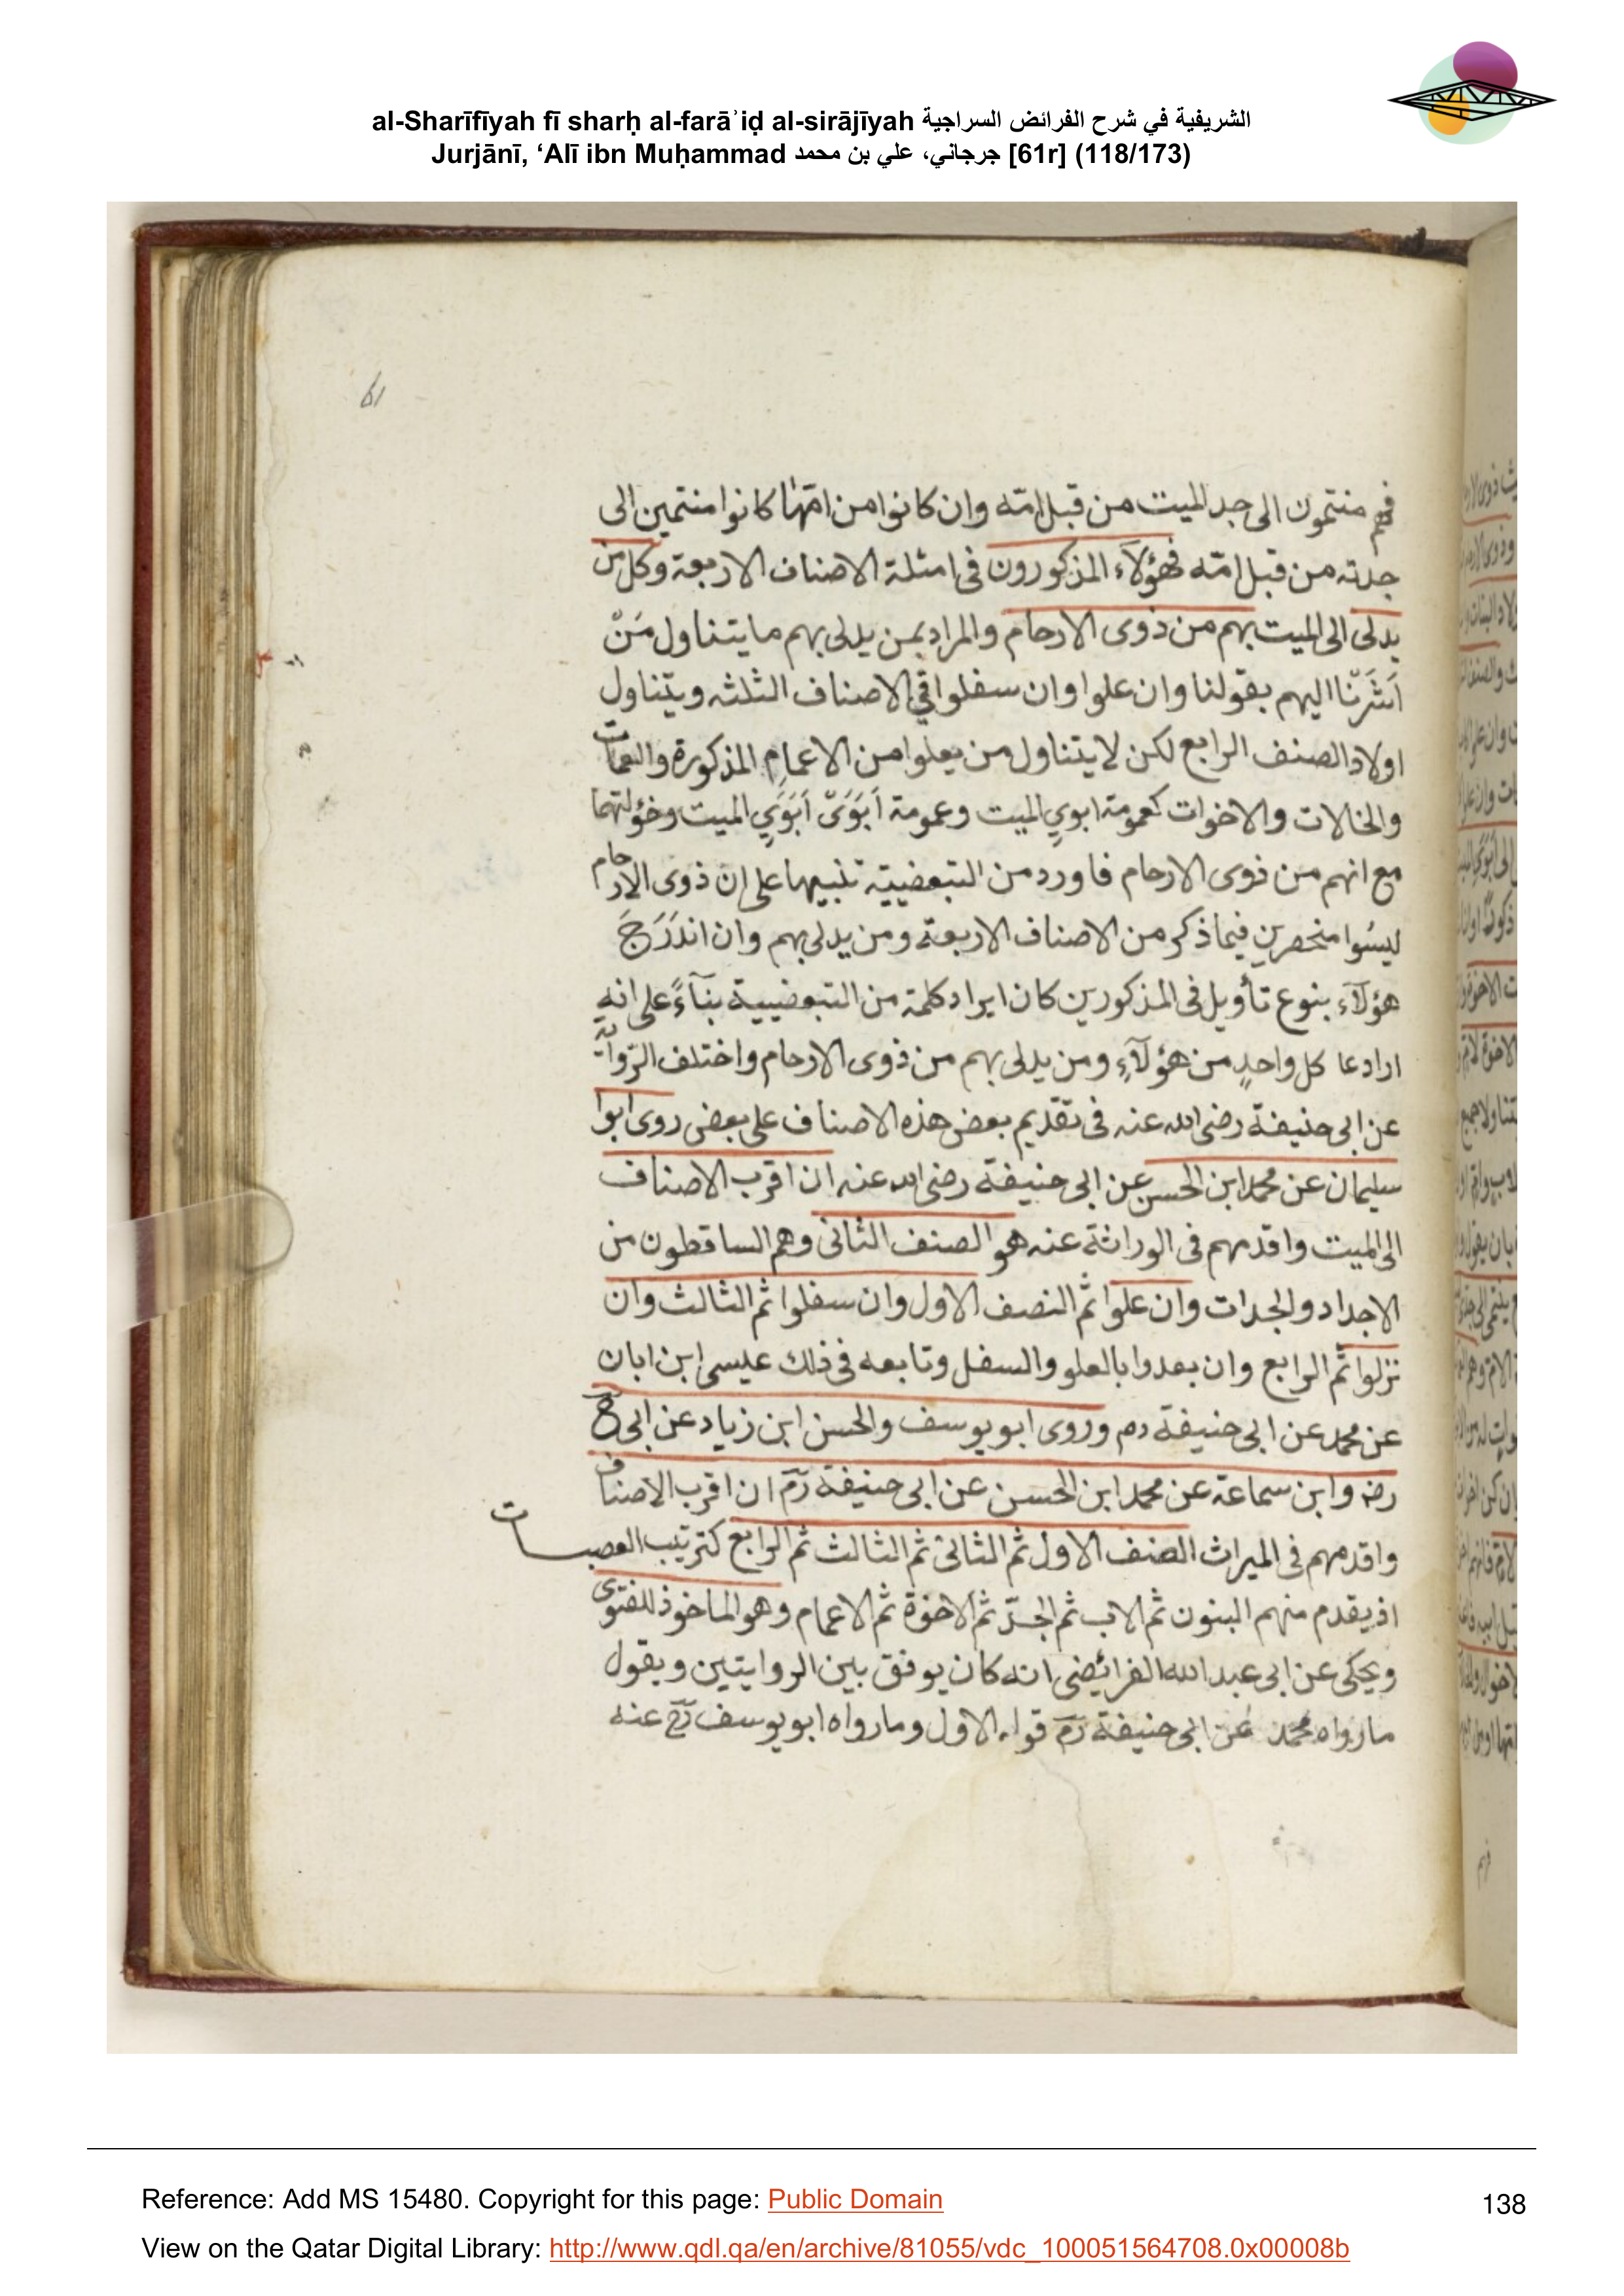 al-Sharīfīyah fī sharḥ al-farāʾiḍ al-sirājīyah الشريفية في شرح الفرائض السراجية
Jurjānī, ‘Alī ibn Muḥammad جرجاني، علي بن محمد [61r] (118/173)
61
فهم منتمون الى جد الميت من قبل امّه وان كانوا من امّها كانوا منتمين الى
جدته من قبل امّه فهؤلآء المذكورون فى امثلة الاصناف الاربعة وكل من
يدلى الى الميت بهم من ذوى الارحام والمراد بمن يدلى بهم ما يتناول مَنْ
اَشَرْنا اليهم بقولنا وان علوا وان سفلوا فى الاصناف الثلثه ويتناول
اولاد الصنف الرابع لكن لا يتناول من يعلوا من الاعمام المذكورة والعمات
والخالات والاخوات كعمومة ابوي الميت وعمومة اَبَوَىْ اَبَوَيِ الميت وخؤلتهما
مع انهم من ذوى الارحام فاورد من التبعضيية تنبيها على ان ذوى الارحام
ليسُوا منحصرين فيما ذكر من الاصناف الاربعة ومن يدلى بهم وان اندَرَجَ
هؤلآء بنوع تأويل فى المذكورين كان ايراد كلمة من التبعضيية بنآءً على انه
اراد عا كل واحدٍ من هؤلآءِ ومن يدلى بهم من ذوى الارحام واختلف الرّواية
عن ابى حنيفة رضى الله عنه فى تقديم بعض هذه الاصناف على بعض روى ابوا
سليمان عن محمد ابن الحسن عن ابى حنيفة رضى الله عنه ان اقرب الاصناف
الى الميت واقدمهم فى الوراثة عنه هو الصنف الثانى وهم الساقطون من
الاجداد والجدات وان علوا ثم النصف الاول وان سفلوا ثم الثالث وان
نزلوا ثم الرابع وان بعدوا بالعلو والسفل وتابعه فى ذلك عيسى ابن ابان
عن محمد عن ابى حنيفة رم وروى ابو يوسف والحسن ابن زياد عن ابى ح
رضه وابن سماعة عن محمد ابن الحسن عن ابى حنيفة رم ان اقرب الاصناف
واقدمهم فى الميراث الصنف الاول ثم الثانى ثم الثالث ثم الرابع كترتيب العصبات
اذ يقدم منهم البنون ثم الاب ثم الجدّ ثم الاخوة ثم الاعمام وهو الماخوذ للفتوى
ويحكى عن ابى عبد الله الفرائضى انه كان يوفق بين الروايتين ويقول
ما رواه محمد عن ابى حنيفة رم قوله الاول وما رواه ابو يوسف رح عنه
Reference: Add MS 15480. Copyright for this page: Public Domain
138
View on the Qatar Digital Library: http://www.qdl.qa/en/archive/81055/vdc_100051564708.0x00008b